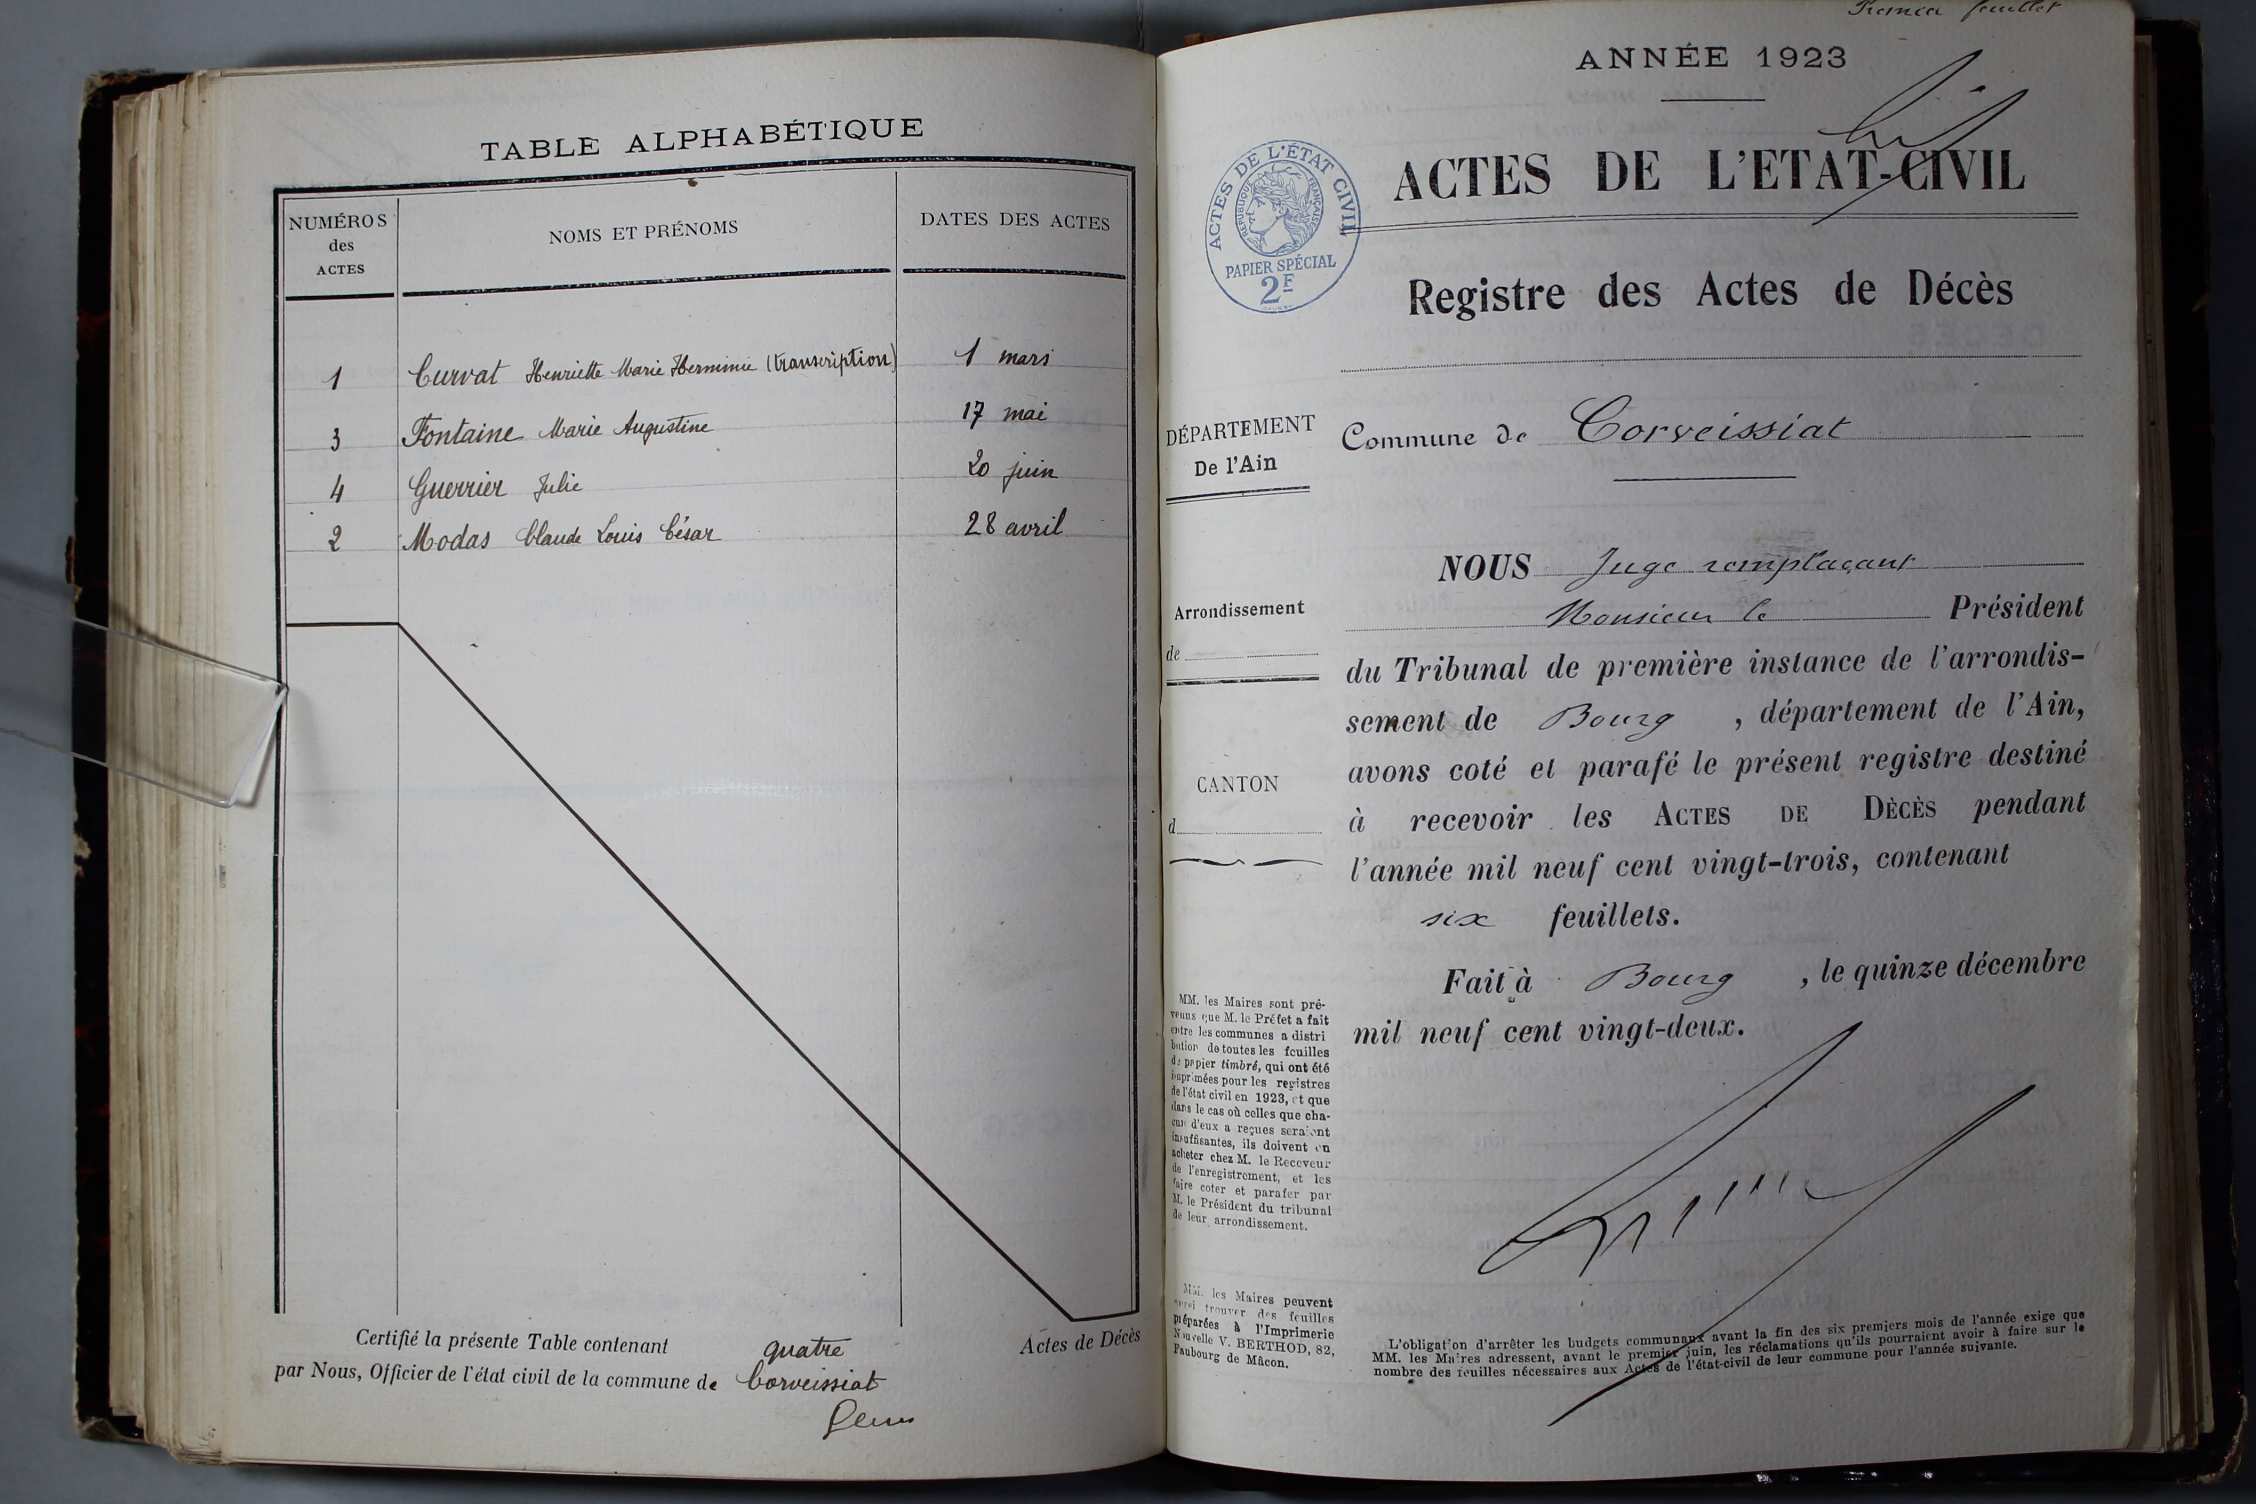 TABLE ALPHABÉTIQUE
NUMÉROS
des
ACTES
NOMS ET PRÉNOMS
DATES DES ACTES
1 Curvat Henriette Marie Herminie (transcription) 1 mars
3 Fontaine Marie Augustine 17 mai
4 Guerrier Julie 20 juin
2 Modas Claude Louis César 28 avril
Certifié la présente Table contenant quatre Actes de Décès
par Nous, Officier de l'état civil de la commune de Corveissiat
Premier feuillet
ANNÉE 1923
ACTES DE L'ETAT-CIVIL
ACTES DE L'ÉTAT CIVIL
RÉPUBLIQUE FRANÇAISE
PAPIER SPÉCIAL
2F
Registre des Actes de Décès
DÉPARTEMENT
De l'Ain
Commune de Corveissiat
Arrondissement
de
CANTON
d
NOUS Juge remplaçant
Monsieur le Président
du Tribunal de première instance de l'arrondis-
sement de Bourg , département de l'Ain,
avons coté et parafé le présent registre destiné
à recevoir les ACTES DE DÈCÈS pendant
l'année mil neuf cent vingt-trois, contenant
six feuillets.
Fait à Bourg , le quinze décembre
mil neuf cent vingt-deux.
MM. les Maires sont pré-
venus que M. le Préfet a fait
entre les communes a distri
bution de toutes les feuilles
de papier timbré, qui ont été
imprimées pour les registres
de l'état civil en 1923, et que
dans le cas où celles que cha-
cun d'eux a reçues seraient
insuffisantes, ils doivent en
acheter chez M. le Receveur
de l'enregistrement, et les
faire coter et parafer par
M. le Président du tribunal
de leur arrondissement.
MM. les Maires peuvent
aussi trouver des feuilles
préparées à l'Imprimerie
Nouvelle V. BERTHOD, 82,
Faubourg de Mâcon.
L'obligation d'arrêter les budgets communaux avant la fin des six premiers mois de l'année exige que
MM. les Maires adressent, avant le premier juin, les réclamations qu'ils pourraient avoir à faire sur le
nombre des feuilles nécessaires aux Actes de l'état-civil de leur commune pour l'année suivante.